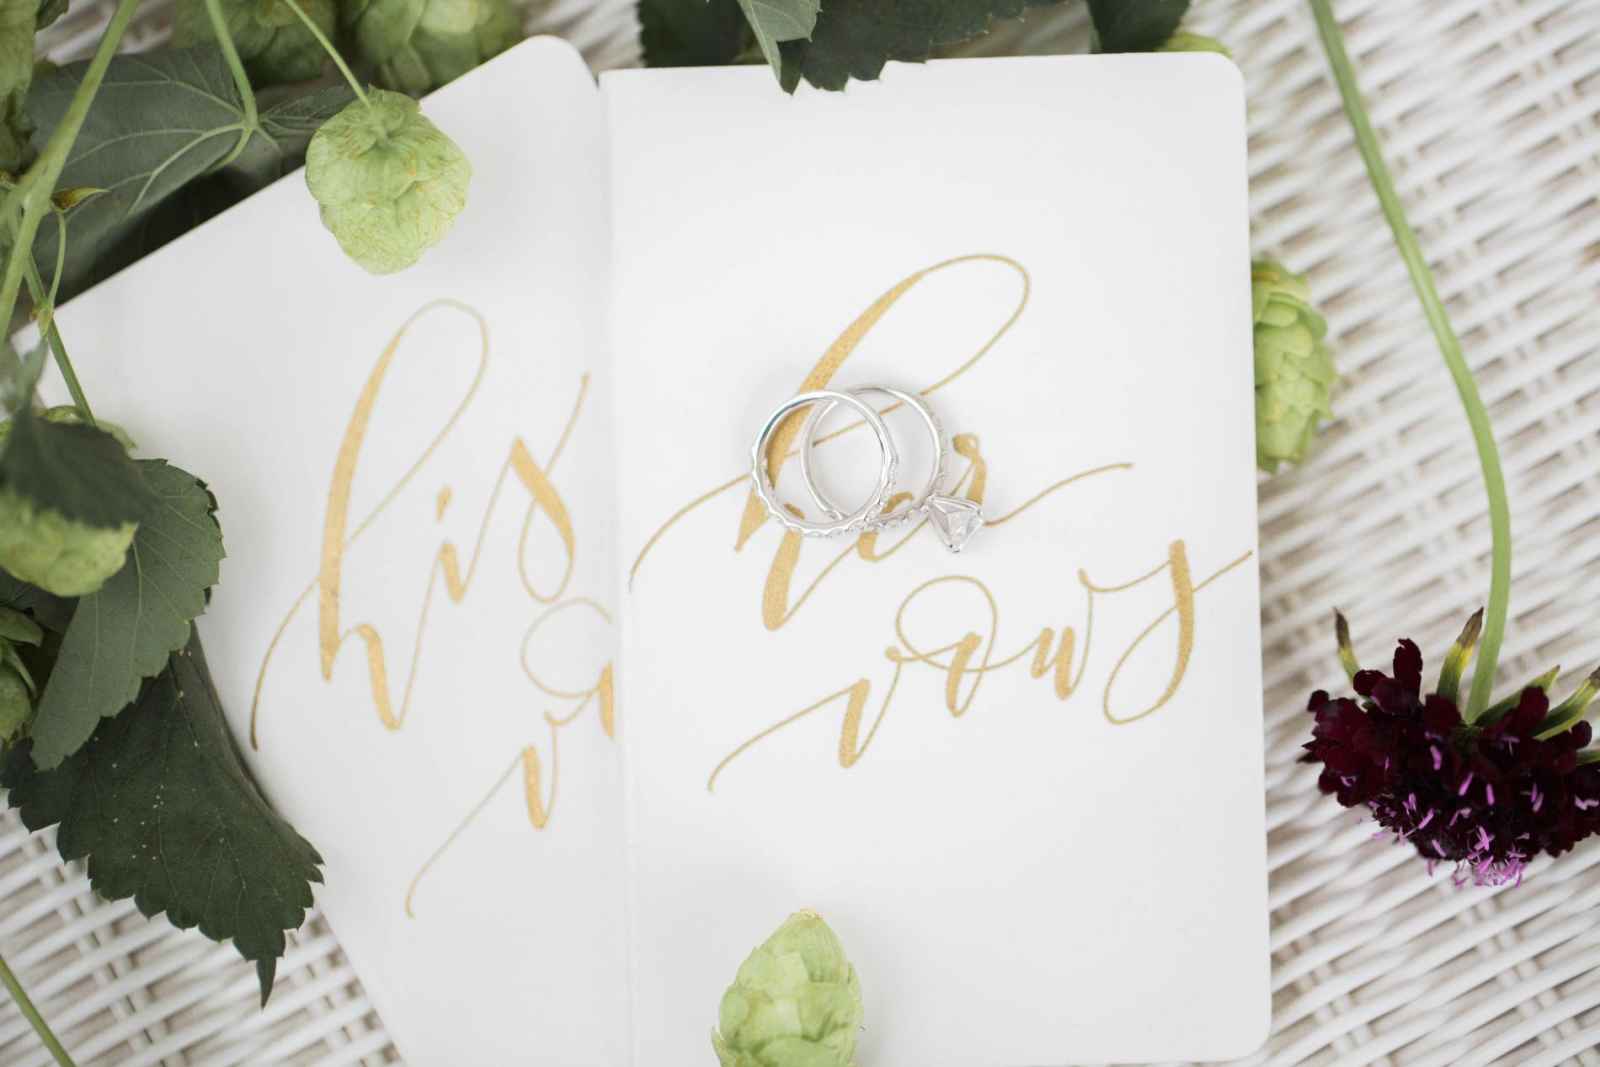 his
her
vows